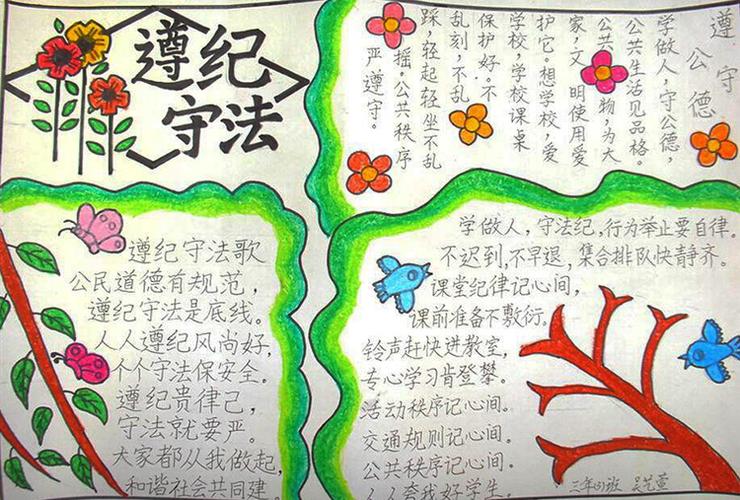 遵纪
守法
遵守公德
学做人，守公德，
公共生活见品格。
公共物，为大
家，文明使用爱
护它。想学校，爱
学校，学校课桌
保护好。不
乱刻，不乱
踩，轻起轻坐不乱
摇。公共秩序
严遵守。
遵纪守法歌
公民道德有规范，
遵纪守法是底线。
人人遵纪风尚好，
个个守法保安全。
遵纪贵律己，
守法就要严。
大家都从我做起，
和谐社会共同建。
学做人，守法纪，行为举止要自律。
不迟到，不早退，集合排队快静齐。
课堂纪律记心间，
课前准备不敷衍。
铃声赶快进教室，
专心学习肯登攀。
活动秩序记心间。
交通规则记心间。
公共秩序记心间。
人人夸我好学生。
三年(3)班